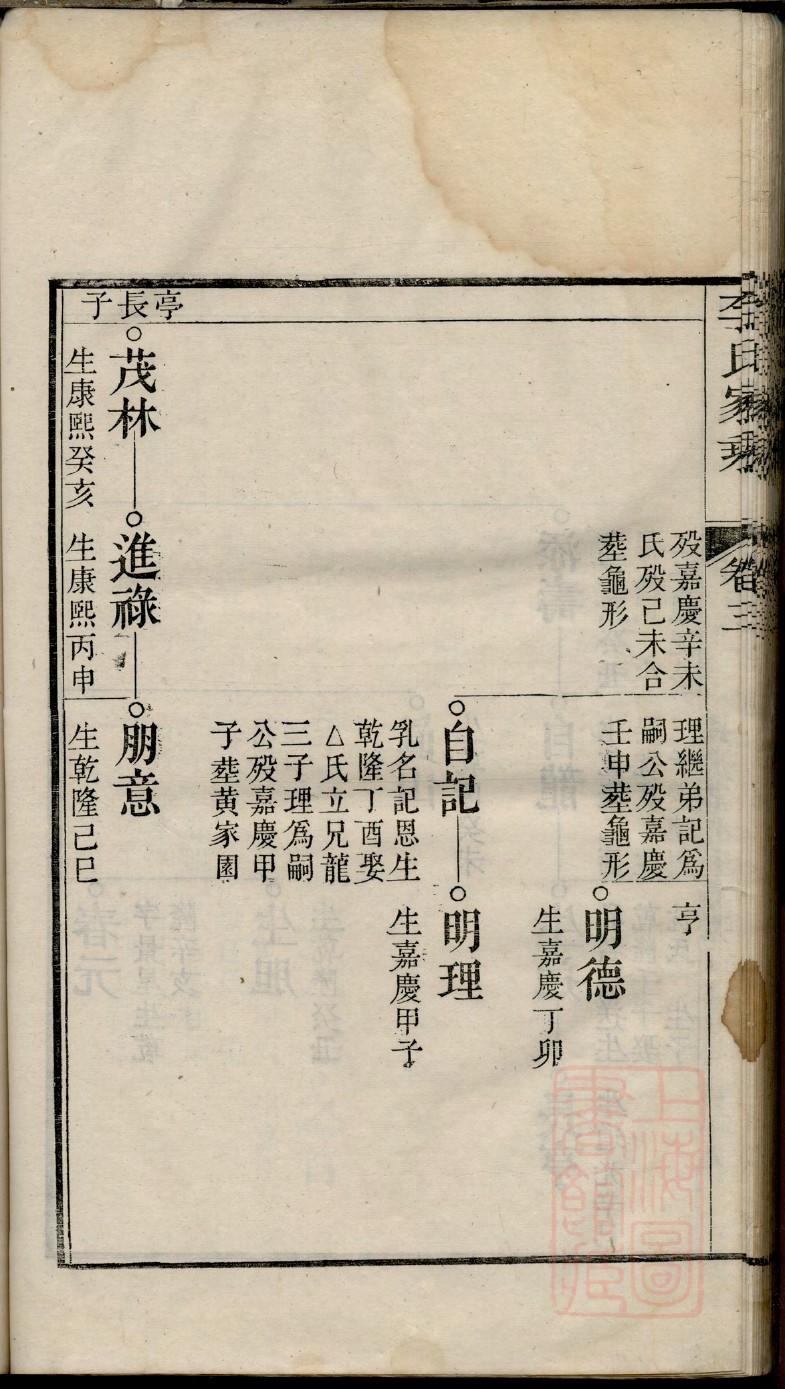 李氏家乘
卷三
歿嘉慶辛未
氏歿己未合
塟龜形
理繼弟記為
嗣公歿嘉慶
壬申塟龜形
亨
明德
生嘉慶丁卯
自記
乳名記恩生
乾隆丁酉娶
△氏立兄龍
三子理為嗣
公歿嘉慶甲
子塟黄家園
明理
生嘉慶甲子
亭長子
茂林
生康熙癸亥
進祿
生康熙丙申
朋意
生乾隆己巳
上海圖
書館藏